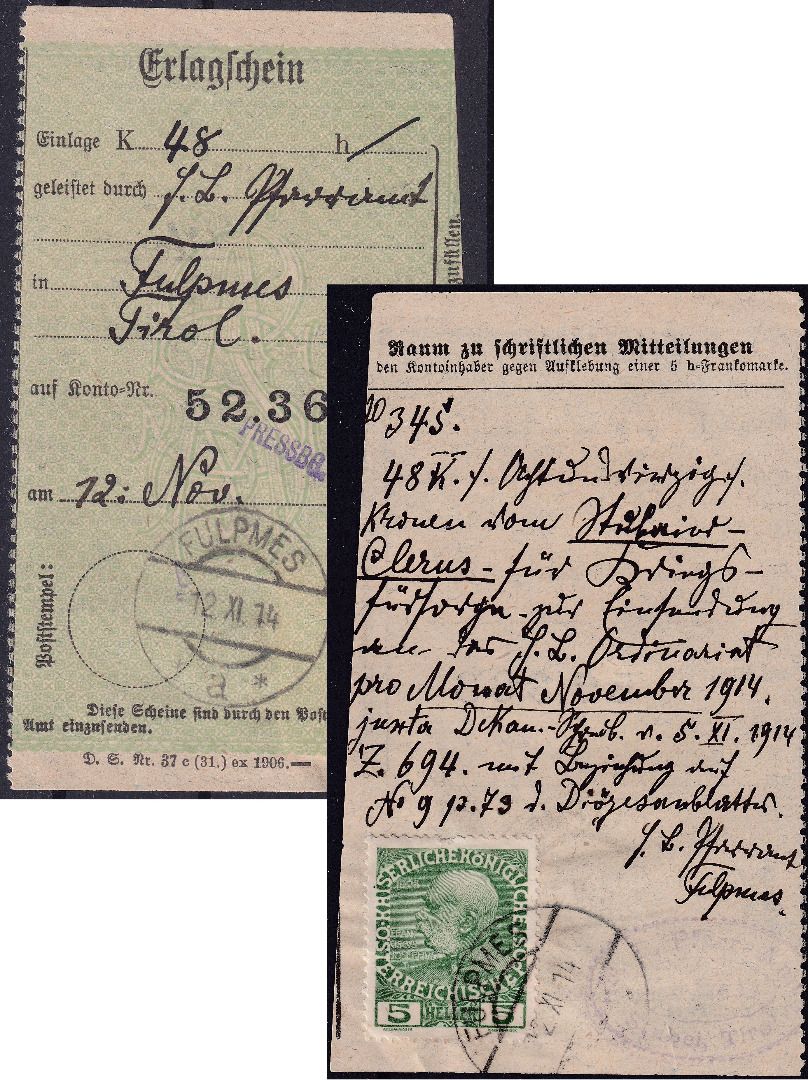 Erlagschein
Einlage K 48 h /
geleistet durch f. b. Pfarramt
in Fulpmes
Tirol.
auf Konto-Nr. 52.36
PRESSBG.
am 12. Nov.
Poststempel:
FULPMES
12 XI 14
a *
Diese Scheine sind durch den Post
Amt einzusenden.
D. S. Nr. 37 c (31.) ex 1906.—
zufüllen.
Raum zu schriftlichen Mitteilungen
den Kontoinhaber gegen Aufklebung einer 5 h-Frankomarke.
345.
48 K. s. Achtundvierzig s.
Kronen vom Stubaier-
Clerus - für Kriegs-
fürsorge - zur Einsendung
an das f. b. Ordinariat
pro Monat November 1914.
juxta Dekan.-Schrb. v. 5. XI. 1914
Z. 694. mit Beziehung auf
No 9 p. 73 d. Diözesanblattes.
f. b. Pfarramt
Fulpmes.
KAISERLICHE KÖNIGLICHE
ÖSTERREICHISCHE POST
5 HELLER 5
FULPMES
12 XI 14